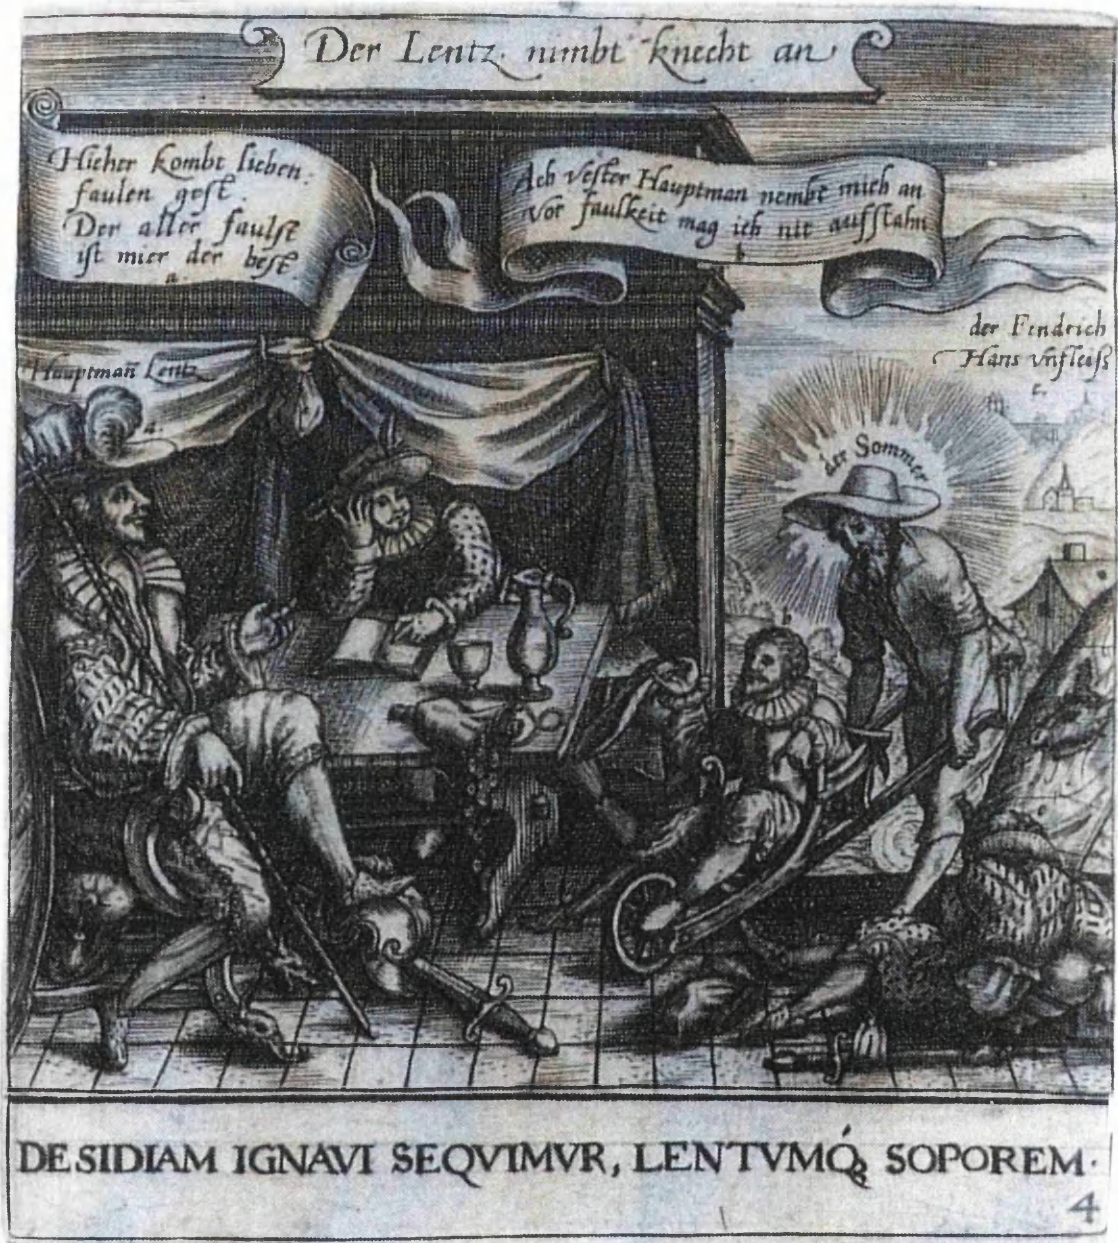 Der Lentz nimbt knecht an
Hieher kombt lieben
faulen gest.
Der aller faulst
ist mier der best.
a.
Ach vester Hauptman nembt mich an
Vor faulkeit mag ich nit auffstahn
b
der Fendrich
Hans vnfleiß
c.
Hauptman̄ Lentz
a.
der Sommer
b
DESIDIAM IGNAVI SEQVIMVR, LENTVMQ́ꝫ SOPOREM.
4